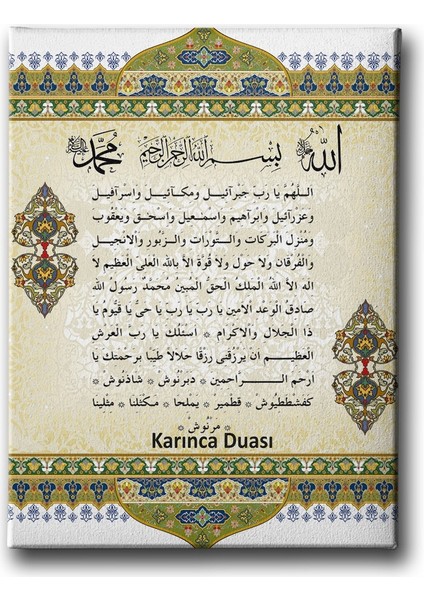 الله بسم الله الرحمن الرحيم محمد
اللهم يا رب جبرآئيل وميكآئيل واسرآفيل
وعزرائيل وابرآهيم واسمعيل واسحق ويعقوب
ومنزل البركات والتورات والزبور والانجيل
والفرقان ولا حول ولا قوة الا بالله العلى العظيم لا
اله الا الله الملك الحق المبين محمد رسول الله
صادق الوعد الامين يا رب يا رب يا حى يا قيوم يا
ذا الجلال والاكرام * اسئلك يا رب العرش
العظيم ان يرزقنى رزقا حلالا طيبا برحمتك يا
ارحم الراحمين * دبرنوش * شاذنوش *
كفشططيوش * قطمير * يمليخا * مكثلنا * مثلينا
* مرنوش *
Karınca Duası